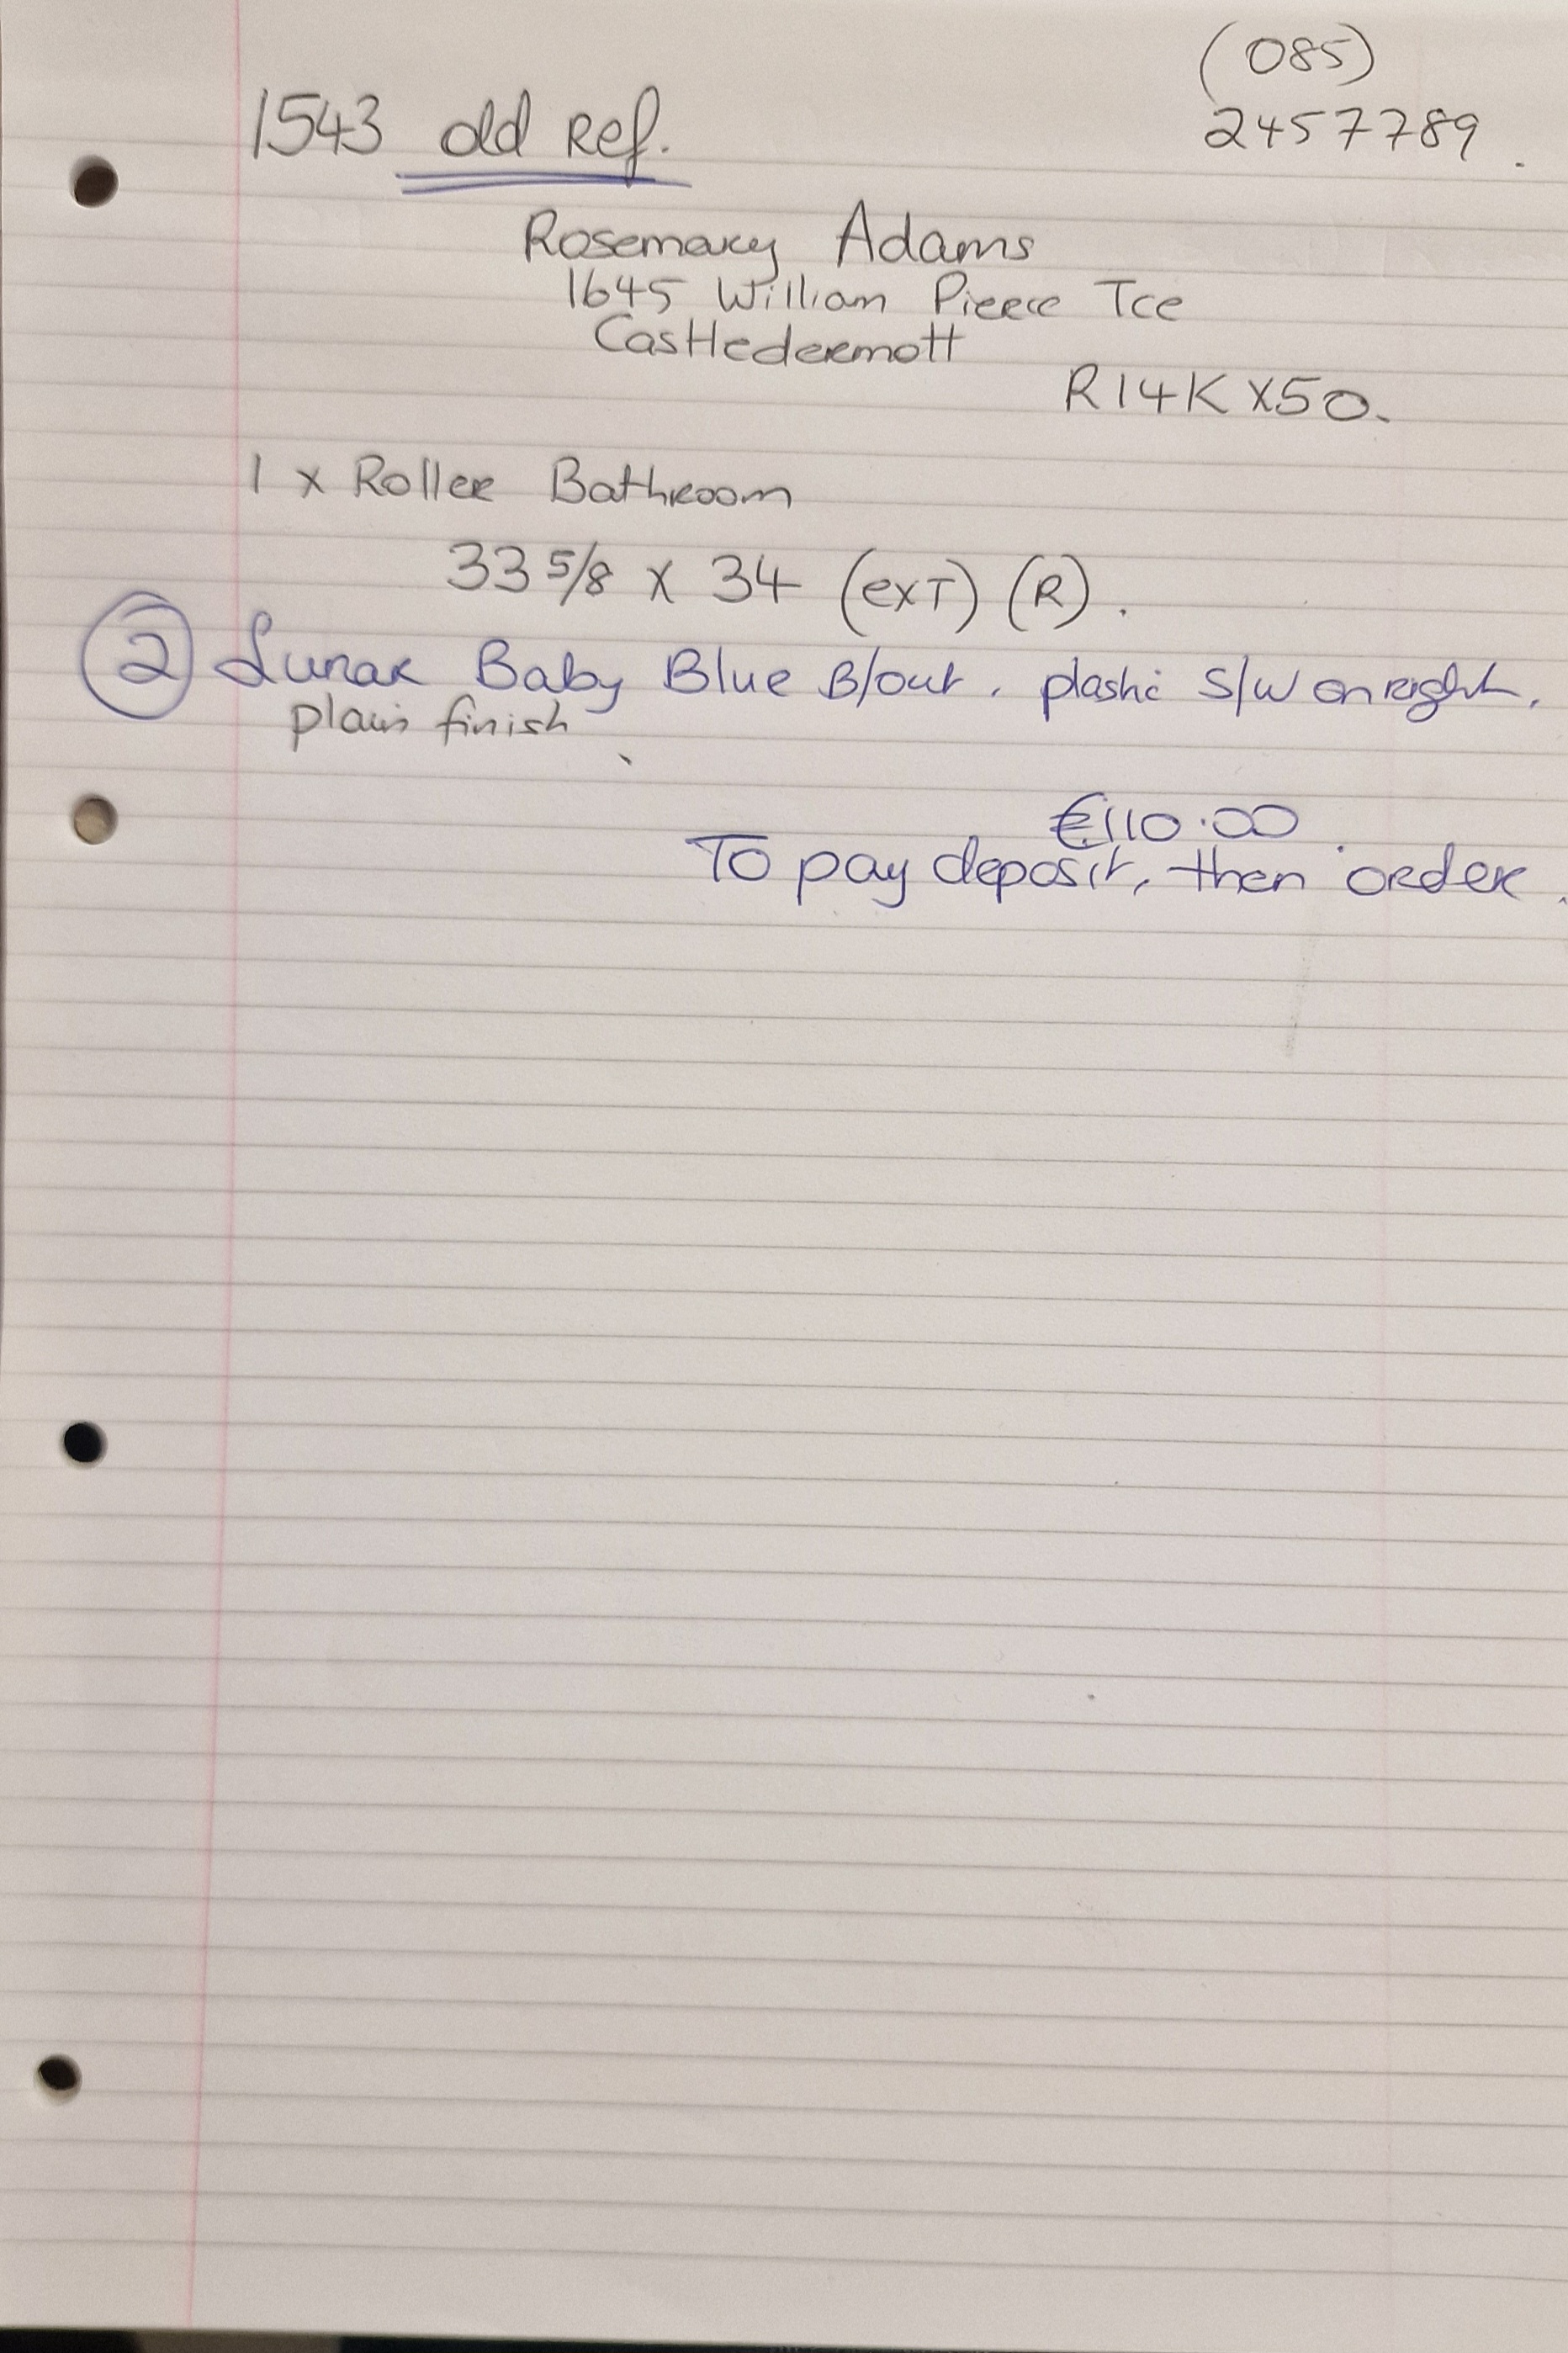 (085)
1543 old Ref.
2457789.
Rosemary Adams
1645 William Pierce Tce
Castledermott
R14K X50.
1 x Roller Bathroom
33 5/8 x 34 (exT) (R).
② Lunar Baby Blue B/out. plastic S/W on right.
plain finish.
€110.00.
To pay deposit, then order.